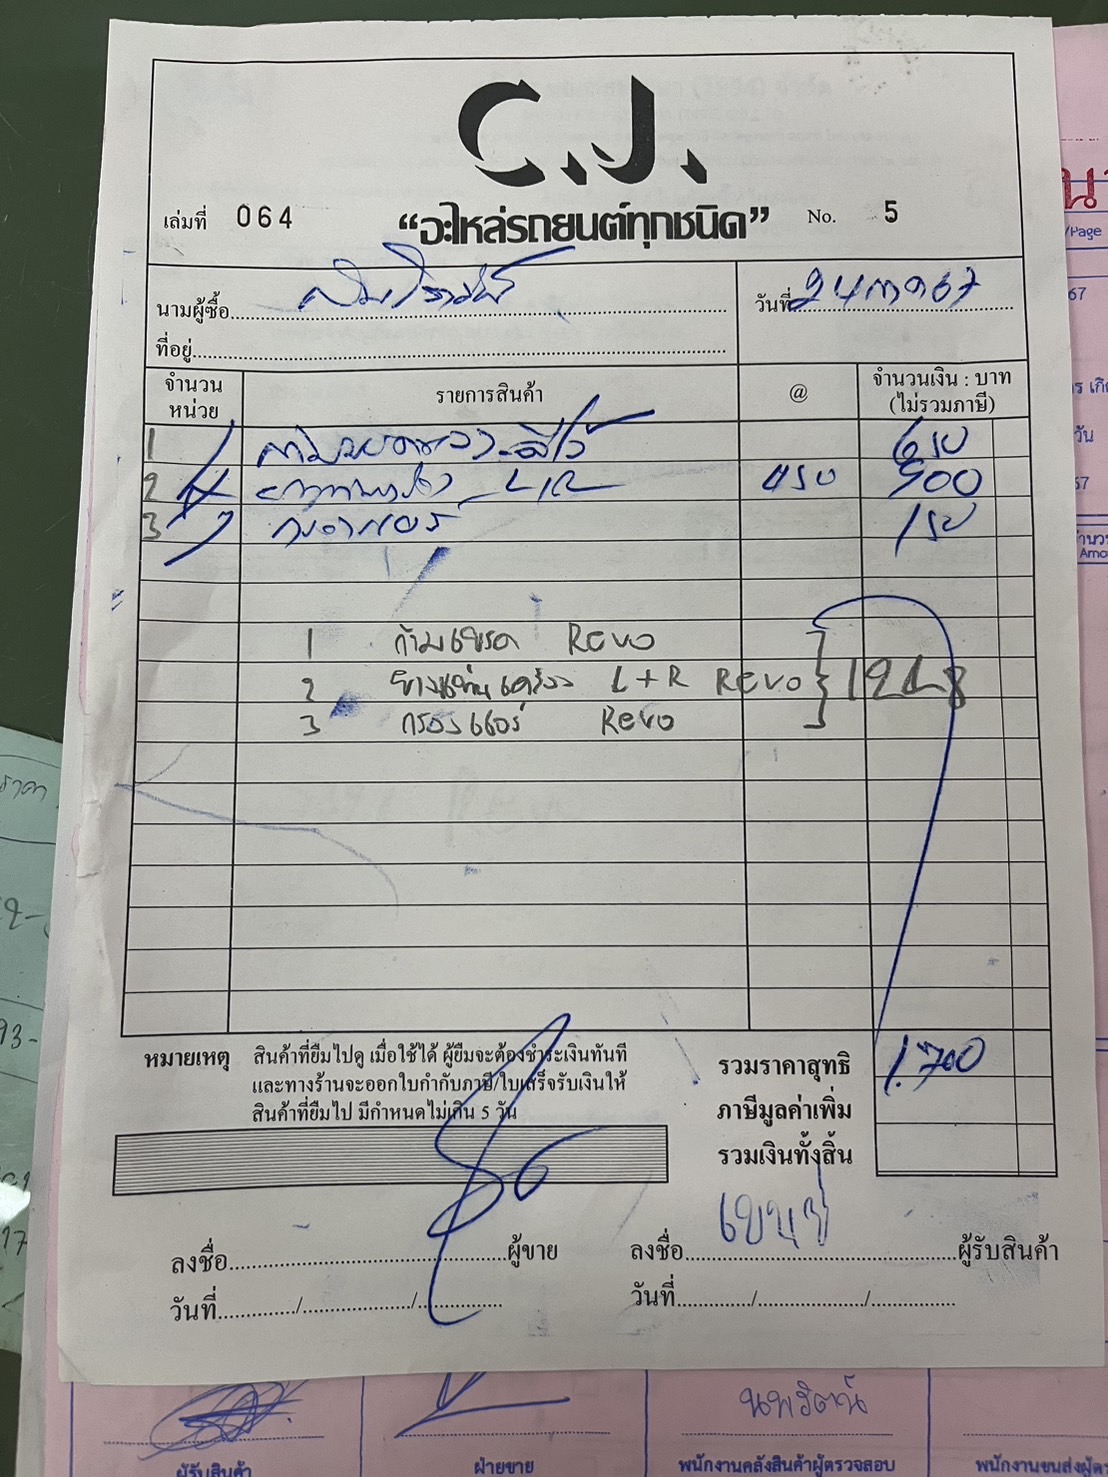 C.J.
เล่มที่ 064 "อะไหล่รถยนต์ทุกชนิด" No. 5
นามผู้ซื้อ
วันที่ 24 67
ที่อยู่
จำนวน หน่วย รายการสินค้า @ จำนวนเงิน : บาท (ไม่รวมภาษี)
1 650
2 L/R 450 900
3 กรองแอร์ 150
1 ก้ามเบรค Revo
2 ยางแท่นเครื่อง L+R Revo
3 กรองแอร์ Revo
หมายเหตุ สินค้าที่ยืมไปดู เมื่อใช้ได้ ผู้ยืมจะต้องชำระเงินทันที
และทางร้านจะออกใบกำกับภาษี/ใบเสร็จรับเงินให้
สินค้าที่ยืมไป มีกำหนดไม่เกิน 5 วัน
รวมราคาสุทธิ 1,700
ภาษีมูลค่าเพิ่ม
รวมเงินทั้งสิ้น
ลงชื่อ ผู้ขาย ลงชื่อ ผู้รับสินค้า
วันที่ / / วันที่ / /
/Page
67
วัน
67
ราคา
93-
17
นพรัตน์
ผู้รับสินค้า ฝ่ายขาย พนักงานคลังสินค้าผู้ตรวจสอบ